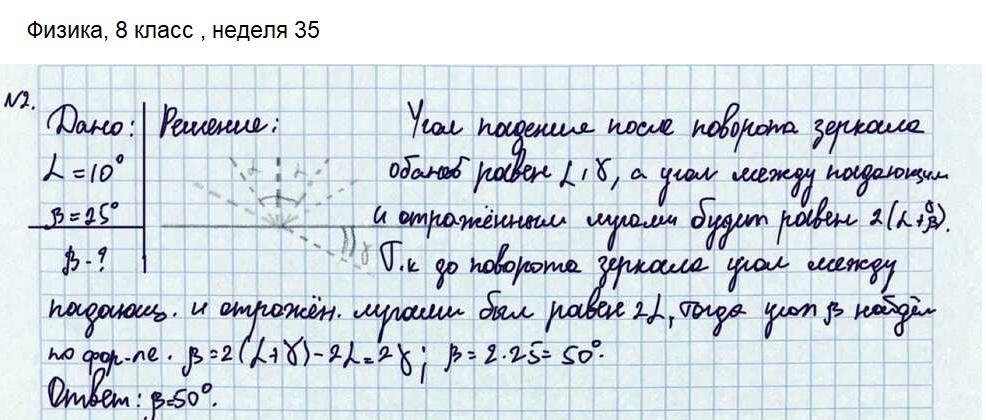 Физика, 8 класс , неделя 35
№2.
Дано: Решение: Угол падения после поворота зеркала
α = 10° равен α, γ, а угол между падающим
β = 25° и отражённым лучами будет равен 2(α+β).
β - ? Т.к до поворота зеркала угол между
падающ. и отражён. лучами был равен 2α, тогда угол β найдём
по фор-ле. β = 2(α+γ)-2α=2γ; β = 2·25= 50°.
Ответ: β=50°.